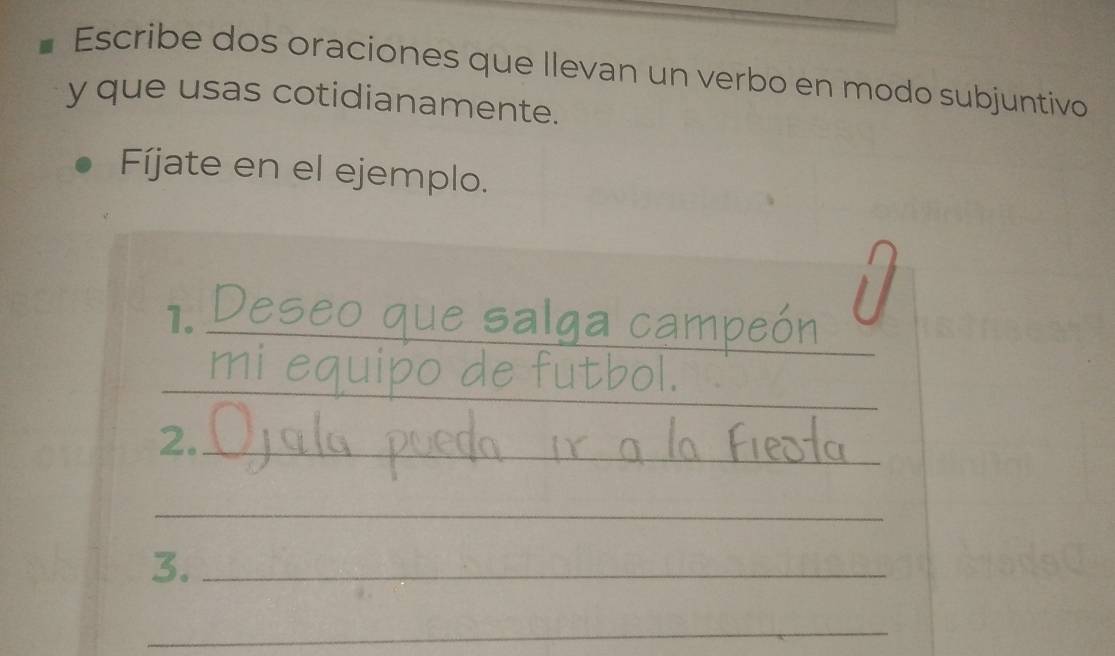 Escribe dos oraciones que llevan un verbo en modo subjuntivo
y que usas cotidianamente.
Fíjate en el ejemplo.
1. Deseo que salga campeón
mi equipo de futbol.
2. Ojala pueda ir a la Fiesta
3.